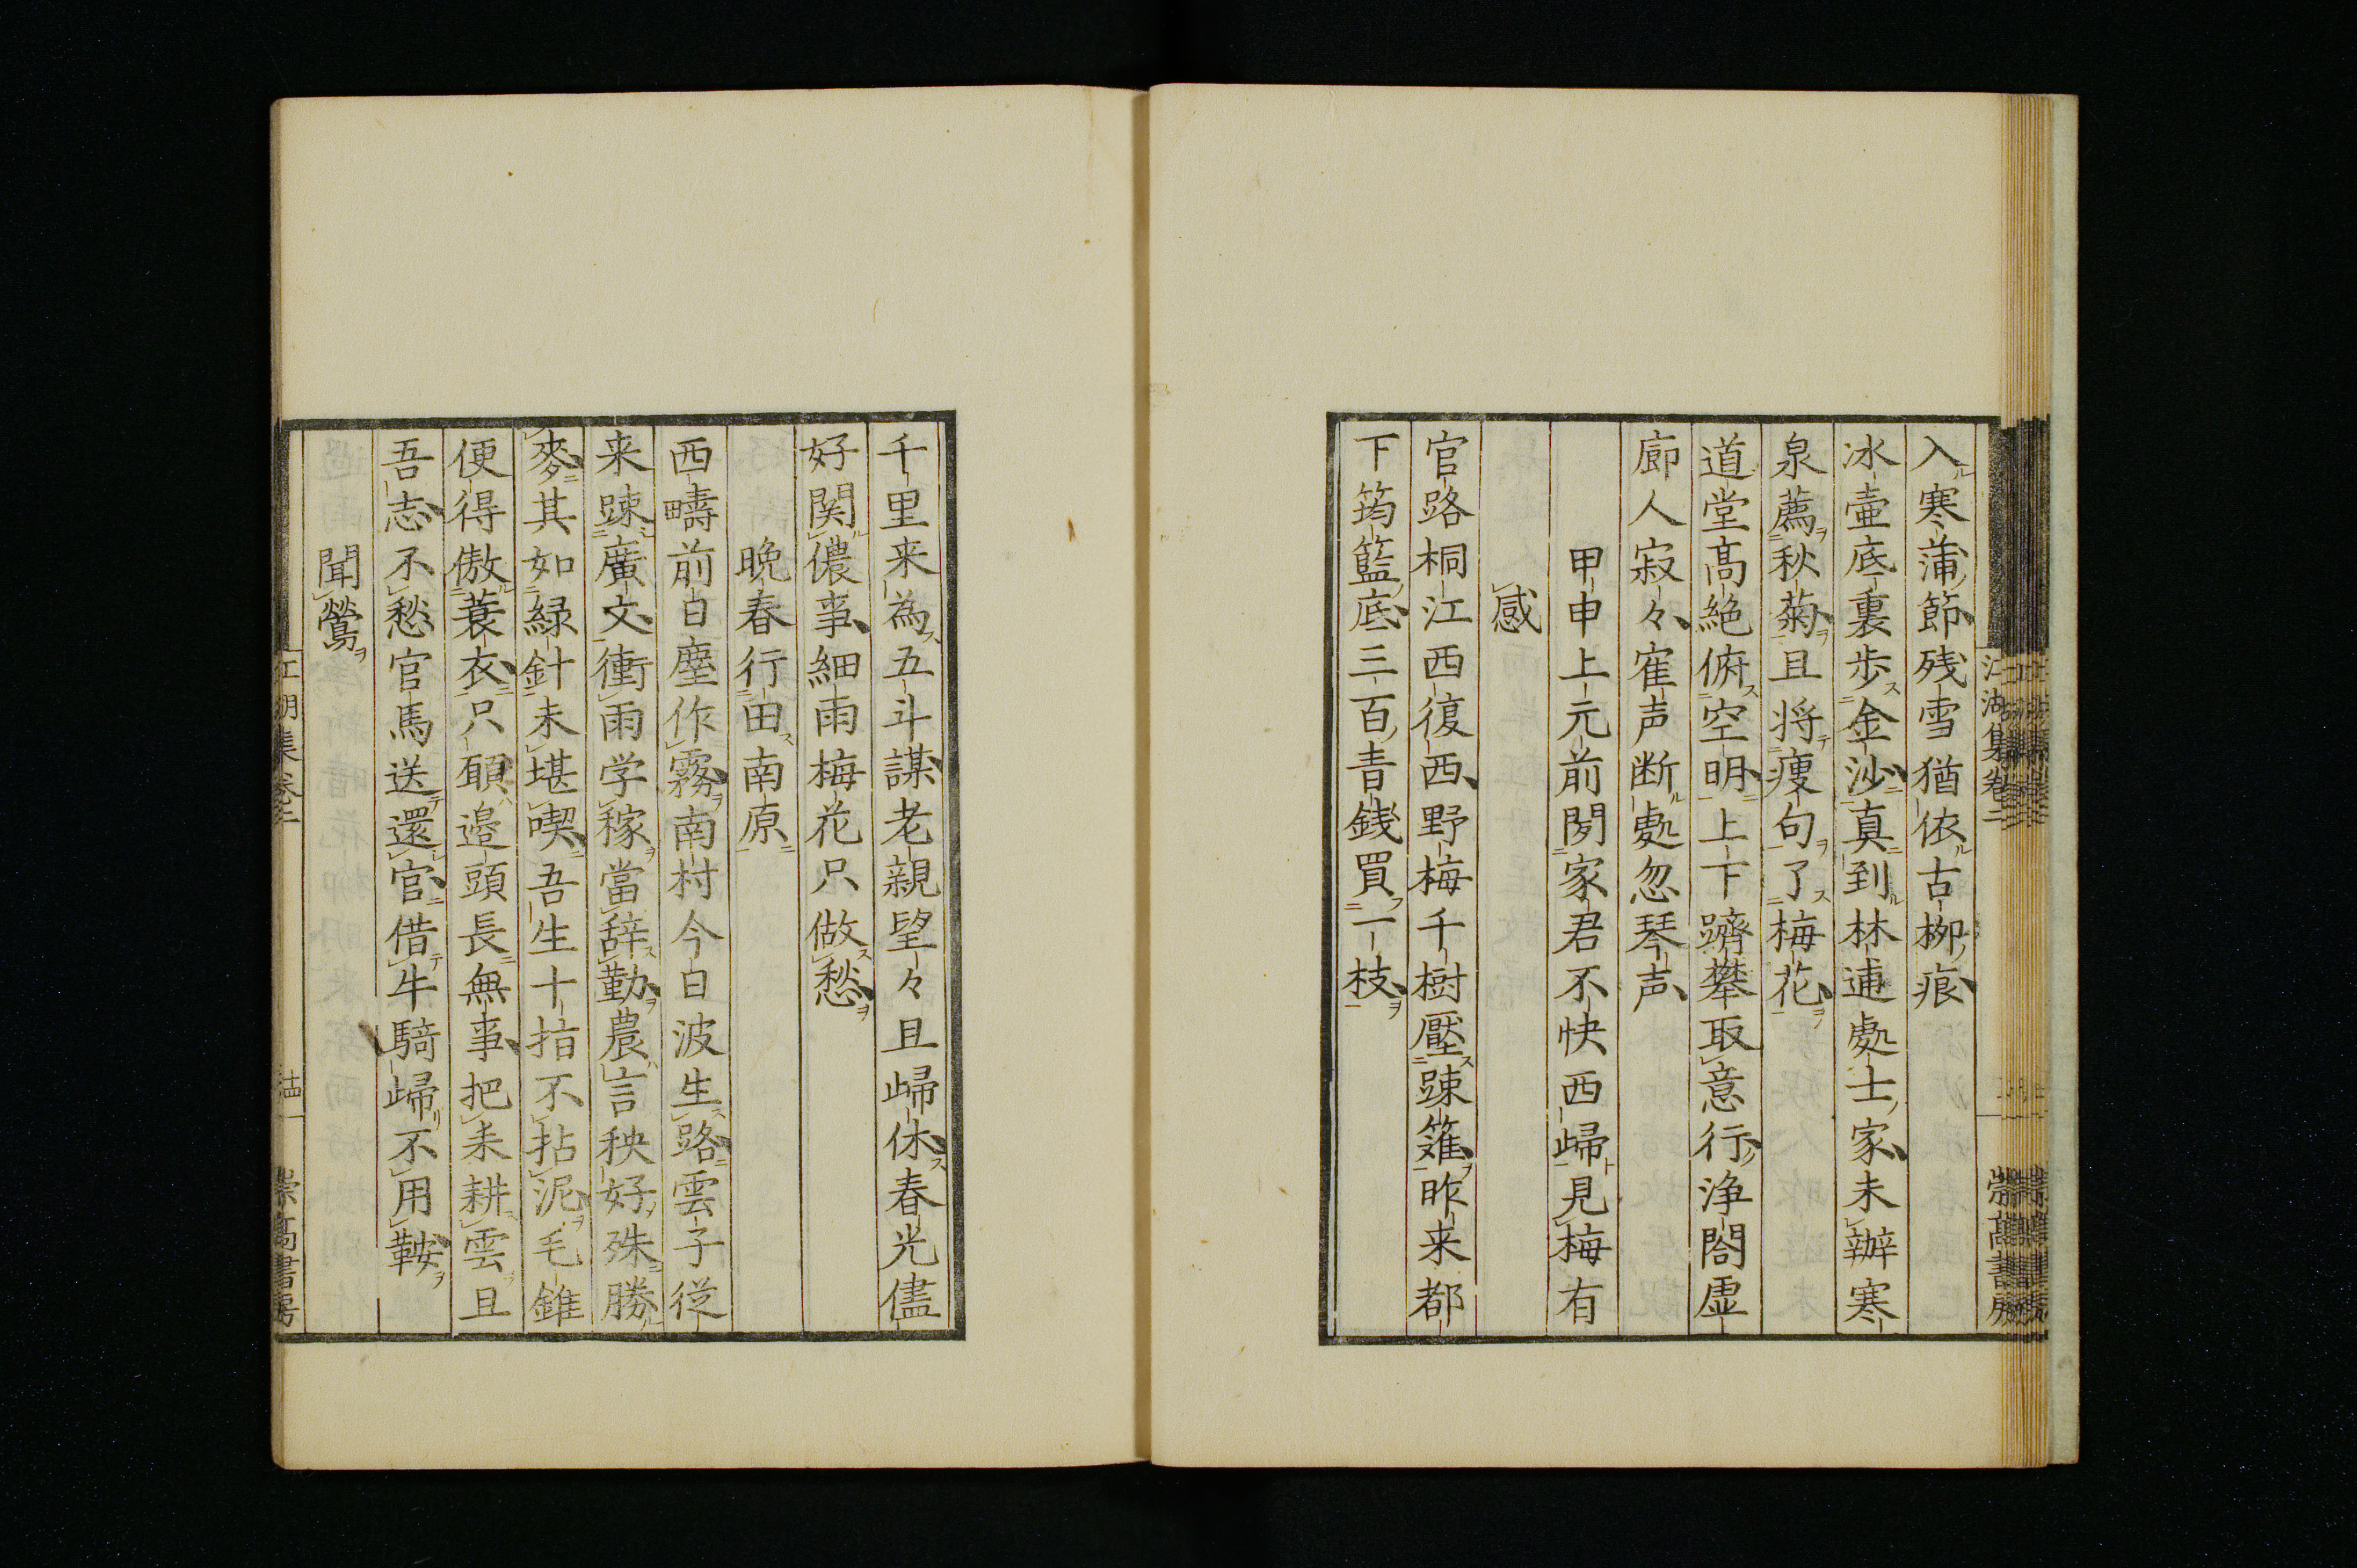 入寒蒲節残雪猶依古栁痕
冰壷底裏歩金沙真到林逋處士家未辦寒
泉薦秋菊且将痩句了梅花
道堂髙絶俯空明上下躋攀取意行浄閤虚
廊人寂々寉声断處忽琴声
甲申上元前聞家君不快西歸見梅有
感
官路桐江西復西野梅千樹壓踈籬昨来都
下筠籃底三百青銭買一枝
江湖集卷二
崇髙書房
千里来為五斗謀老親望々且歸休春光儘
好関儂事細雨梅花只做愁
晩春行田南原
西疇前日塵作霧南村今日波生路雲子従
来踈廣文衝雨学稼當辞勤農言秧好殊勝
麥其如緑針未堪喫吾生十指不拈泥毛錐
便得傲蓑衣只願邉頭長無事把耒耕雲且
吾志不愁官馬送還官借牛騎歸不用鞍
聞鶯
江湖集卷二
崇髙書房